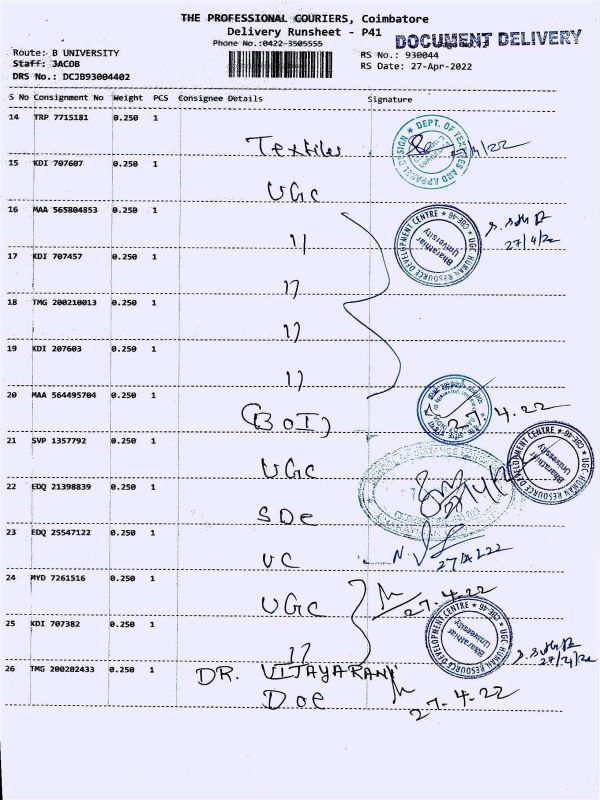 THE PROFESSIONAL COURIERS, Coimbatore
Delivery Runsheet - P41
Phone No.:0422-3505555
DOCUMENT DELIVERY
Route: B UNIVERSITY
RS No.: 930044
Staff: JACOB
RS Date: 27-Apr-2022
DRS No.: DCJB93004402
S No Consignment No Weight PCS Consignee Details Signature
14 TRP 7715181 0.250 1
Textiles
DEPT. OF TEXTILES AND APPAREL DESIGN
15 KDI 707607 0.250 1
UGC
16 MAA 565804853 0.250 1
11
UGC HUMAN RESOURCE DEVELOPMENT CENTRE CBE-46
Bharathiar University
27/4/22
17 KDI 707457 0.250 1
17
18 TMG 200210013 0.250 1
17
19 KDI 207603 0.250 1
17
20 MAA 564495704 0.250 1
(BOI)
27.4.22
21 SVP 1357792 0.250 1
UGC
UGC HUMAN RESOURCE DEVELOPMENT CENTRE CBE-46
Bharathiar University
22 EDQ 21398839 0.250 1
SDE
23 EDQ 25547122 0.250 1
VC
24 MYD 7261516 0.250 1
UGC
27.4.22
25 KDI 707382 0.250 1
17
UGC HUMAN RESOURCE DEVELOPMENT CENTRE CBE-46
Bharathiar University
27/4/22
26 TMG 200202433 0.250 1
DR. VIJAYARANI
DOE
27.4.22